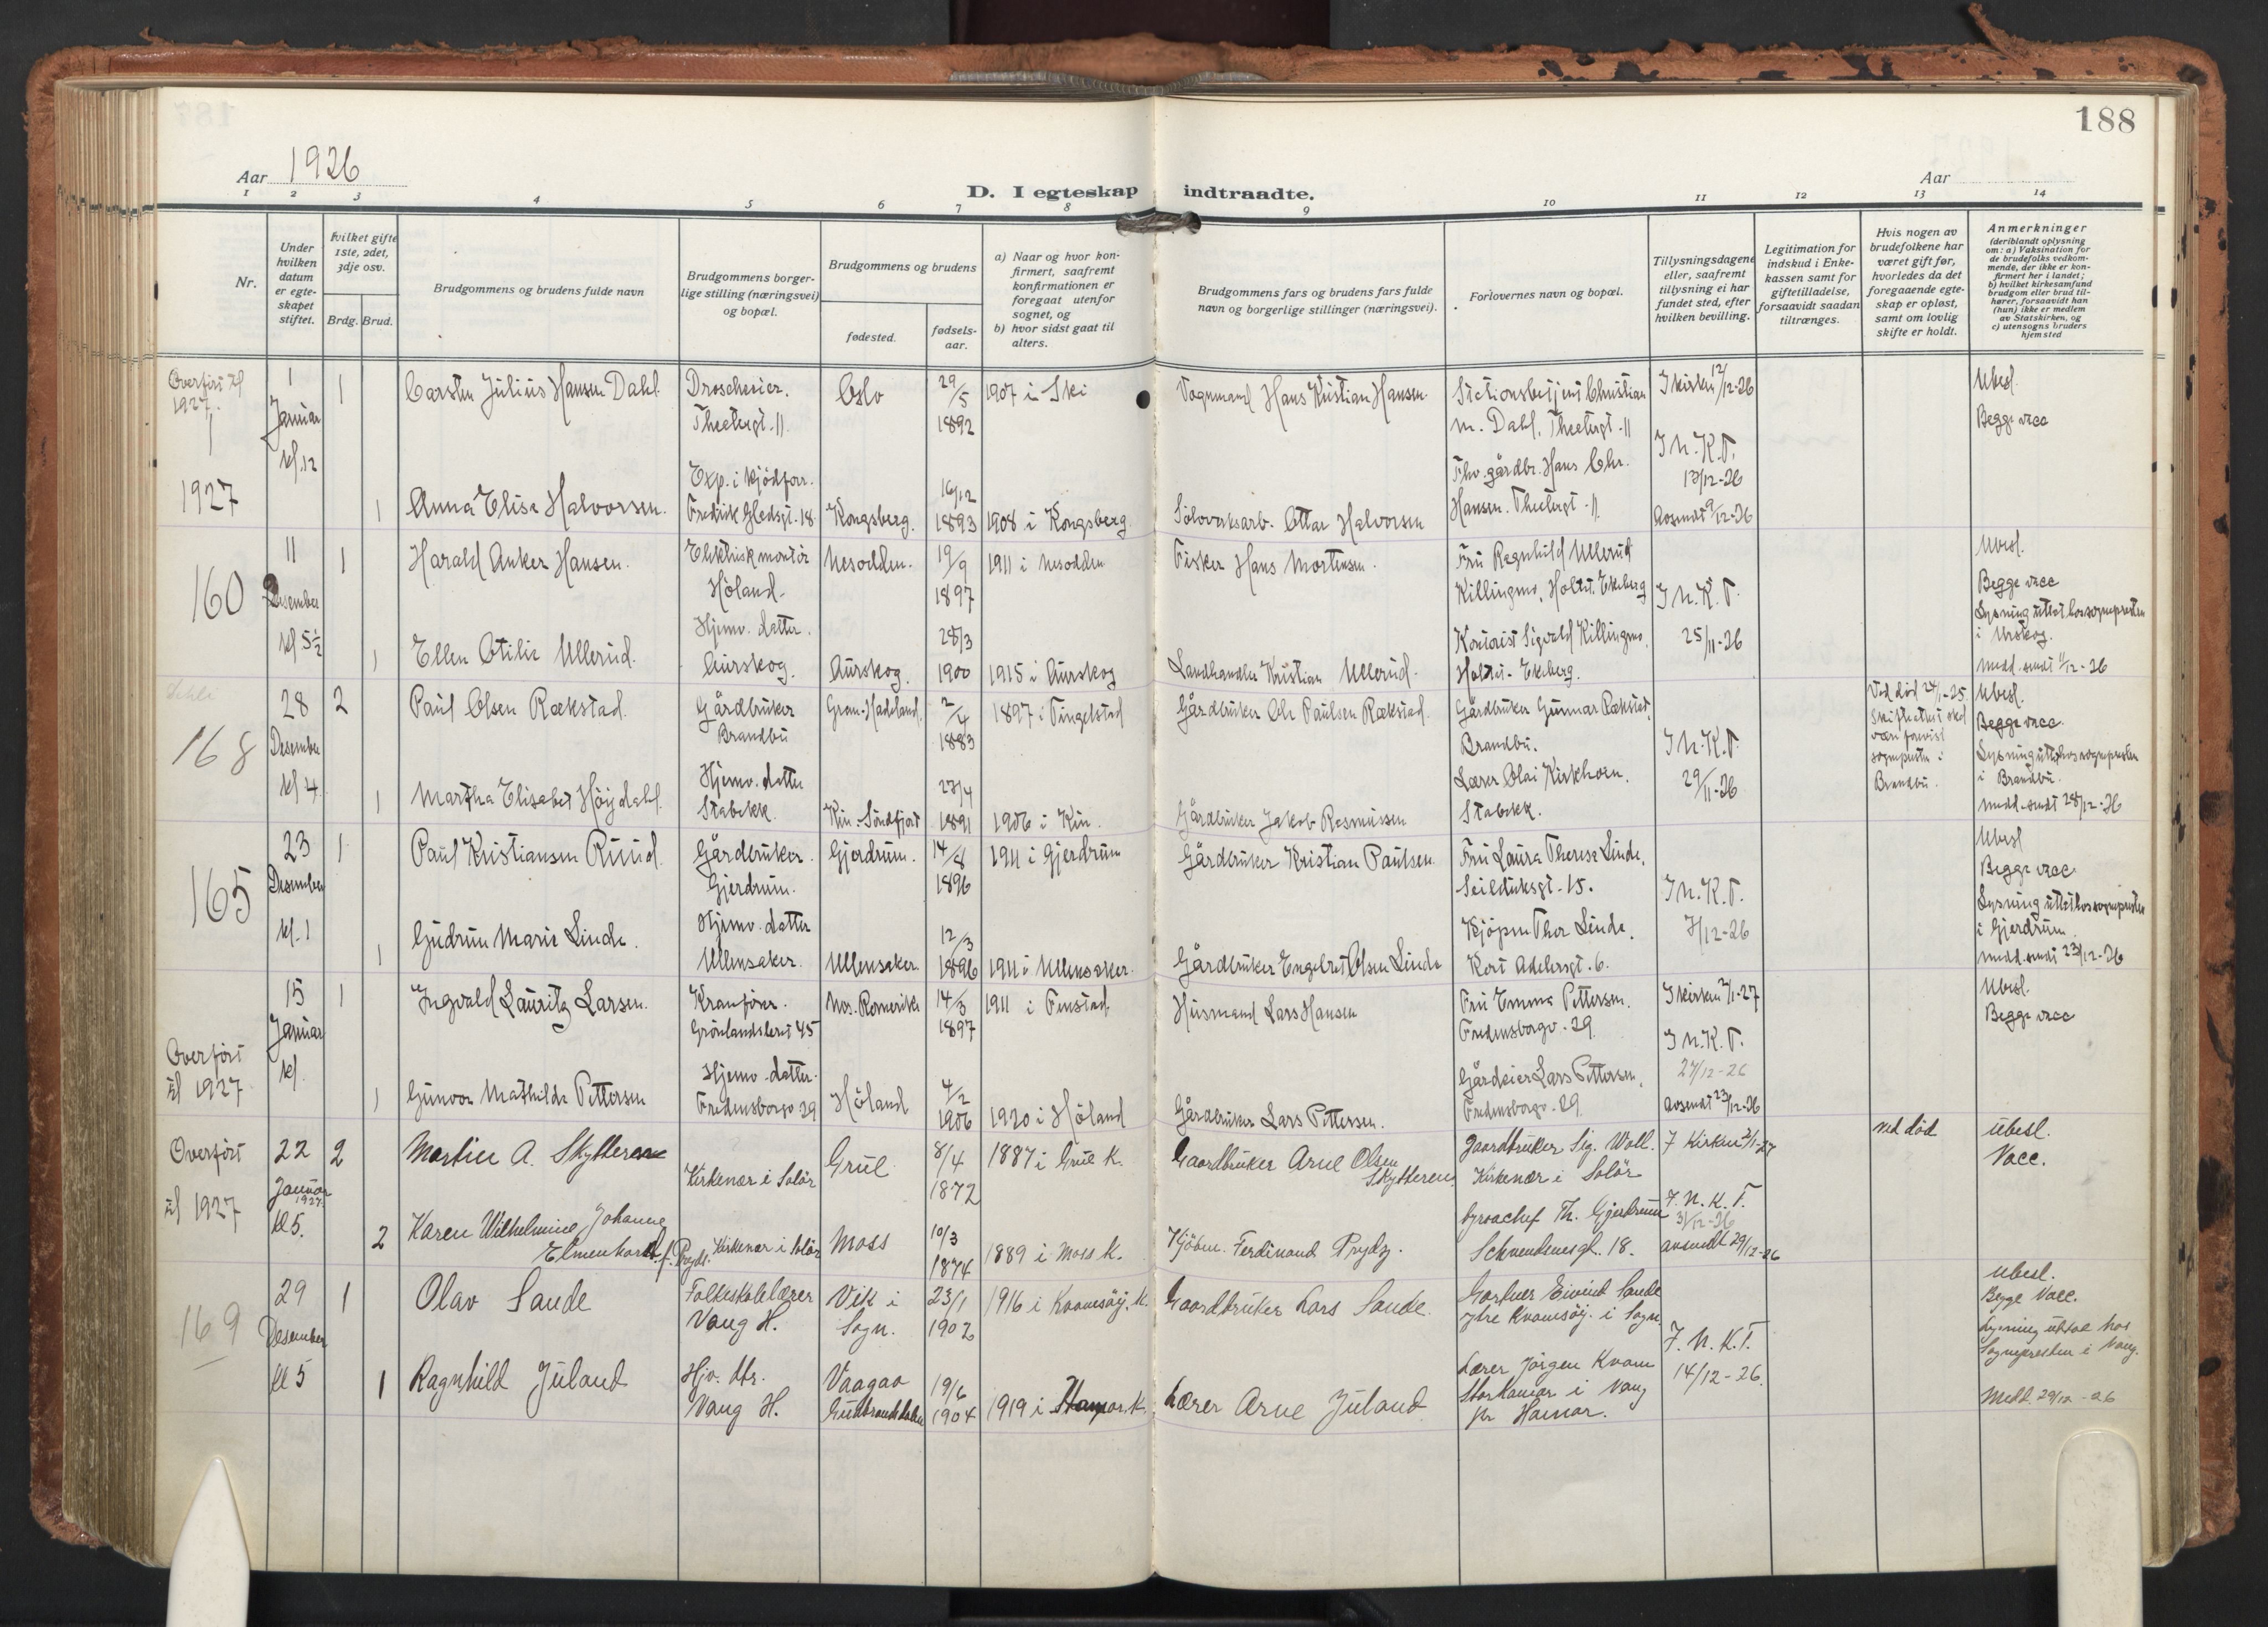 188
Aar 1926
Aar
D. I egteskap indtraadte.
1 2 3 4 5 6 7 8 9 10 11 12 13 14
Nr.
Under hvilken datum er egteskapet stiftet.
hvilket gifte 1ste, 2det, 3dje osv.
Brdg. Brud.
Brudgommens og brudens fulde navn
Brudgommens borgerlige stilling (næringsvei) og bopæl.
Brudgommens og brudens
fødested.
fødselsaar.
a) Naar og hvor konfirmert, saafremt konfirmationen er foregaat utenfor sognet, og
b) hvor sidst gaat til alters.
Brudgommens fars og brudens fars fulde navn og borgerlige stillinger (næringsvei).
Forlovernes navn og bopæl.
Tillysningsdagene eller, saafremt tillysning ei har fundet sted, efter hvilken bevilling.
Legitimation for indskud i Enkekassen samt for giftetilladelse, forsaavidt saadan tiltrænges.
Hvis nogen av brudefolkene har været gift før, hvorledes da det foregaaende egteskap er opløst, samt om lovlig skifte er holdt.
Anmerkninger
(deriblandt oplysning om: a) Vaksination for de brudefolks vedkommende, der ikke er konfirmert her i landet; b) hvilket kirkesamfund brudgom eller brud tilhører, forsaavidt han (hun) ikke er medlem av Statskirken, og c) utensogns bruders hjemsted
Overført til 1927.
1
1927
1 Januar kl. 12
1
Carsten Julius Hansen Dahl.
Droscheeier. Theatergt. 11.
Oslo
29/5 1892
1907 i Ski
Vognmand Hans Kristian Hansen.
Stationsbetjent Christian M. Dahl, Theatergt. 11
Fhv. gårdbr. Hans Chr. Hansen. Theatergt. 11
I kirken 12/12-26
I N.K.T. 13/12-26
Avsendt 9/12-26
Ubesl.
Begge vacc
1
Anna Elise Halvorsen.
Exp. i kjødforr. Fredrik Gladsgt. 18
Kongsberg.
16/12 1893
1908 i Kongsberg
Sølvverksarb. Ottar Halvorsen
160
11 Desember kl 5½
1
Harald Anker Hansen.
Elektriskmontør Høland.
Nesodden.
19/9 1897
1911 i Nesodden
Fisker Hans Mortensen.
Fru Ragnhild Ullerud Killingmo, Holtet, Ekeberg
Kontorist Sigvald Killingmo, Holtet. Ekeberg.
I N.K.T. 25/11-26
Ubesl.
Begge vacc
Lysning uttat hos sognepresten i Urskog.
Medd. sendt 11/12-26
1
Ellen Otilie Ullerud.
Hjemv. datter. Aurskog.
Aurskog.
28/3 1900
1915 i Aurskog
Landhandler Kristian Ullerud.
168
28 Desember kl 4
2
Paul Olsen Rækstad.
Gårdbruker Brandbu
Gran-Hadeland.
2/4 1883
1897 i Tingelstad
Gårdbruker Ole Paulsen Rækstad.
Gårdbruker Gunnar Rækstad, Brandbu.
Lærer Olai Kirkhorn. Stabekk.
I N.K.T. 29/11-26
Ved død 24/1-25
sogneprsten i Brandbu.
Ubesl.
Begge vacc
Lysning uttat hos sogneprsten i Brandbu.
Medd. sendt 28/12-26
1
Martha Elisabet Høydahl.
Hjemv. datter Stabekk.
Kin-Søndfjord
27/4 1891
1906 i Kin.
Gårdbruker Jakob Rasmussen
165
23 Desember kl. 1
1
Paul Kristiansen Ruud.
Gårdbruker. Gjerdrum.
Gjerdrum.
14/8 1896
1911 i Gjerdrum
Gårdbruker Kristian Paulsen.
Fru Laura Theresa Linde, Seilduksgt. 15.
Kjøpm Thor Linde, Kort Adelersgt. 6.
I N.K.T. 7/12-26
Ubesl
Begge vacc
Lysning uttat hos sogneprsten i Gjerdrum
Medd. sendt 23/12-26
1
Gudrun Marie Linde.
Hjemv. datter Ullensaker.
Ullensaker.
12/3 1896
1911 i Ullensaker.
Gårdbruker Engebret Olsen Linde
Overført til 1927
15 Januar kl.
1
Ingvald Lauritz Larsen.
Kranfører. Grønlandsleret 45
Nes. Romerike
14/3 1897
1911 i Fenstad
Husmand Lars Hansen
Fru Emma Pettersen. Fredensborgv. 29.
Gårdeier Lars Pettersen, Fredensborgv. 29.
I kirken 2/1-27
I N.K.T. 27/12-26
Avsendt 23/12-26
Ubesl.
Begge vacc
1
Gunvor Mathilde Pettersen
Hjemv. datter. Fredensborgv 29
Høland
4/2 1906
1920 i Høland
Gårdbruker Lars Pettersen.
Overført til 1927
22 Januar 1927. kl 5.
2
Martin A. Skytteren
Kirkenær i Solør
Grue
8/4 1872
1887 i Grue K.
Gaardbruker Arne Olsen Skytteren.
Gaardbruker Sig. Woll. Kirkenær i Solør
Byraachef Th. Gjerdrum Schwendenesgt. 18.
I Kirken 2/1-27
I N.K.T. 31/12-26
avsendt 29/12-26
ved død
Ubesl.
Vacc.
2
Karen Wilhelmine Johanne Elmenhorst f. Prydz.
Kirkenær i Solør
Moss
10/3 1874
1889 i Moss K.
Kjøbm. Ferdinand Prydz.
169
29 Desember kl 5
1
Olav Sande
Folkeskolelærer Vang H.
Vik i Sogn.
23/1 1902
1916 i Kvamsøy. K.
Gaardbruker Lars Sande.
Gartner Eivind Sande ytre Kvamsøy. i Sogn.
Lærer Jørgen Kvam Storhamar i Vang pr Hamar.
I N.K.T. 14/12-26.
Ubesl.
Begge Vacc.
Lysning uttat hos Sogneprsten i Vang.
Medd. 29/12-26
1
Ragnhild Juland
Hjv. dtr. Vang H.
Vaagaa Gudbrandsdalen
19/6 1904
1919 i Hamar. K.
Lærer Arne Juland